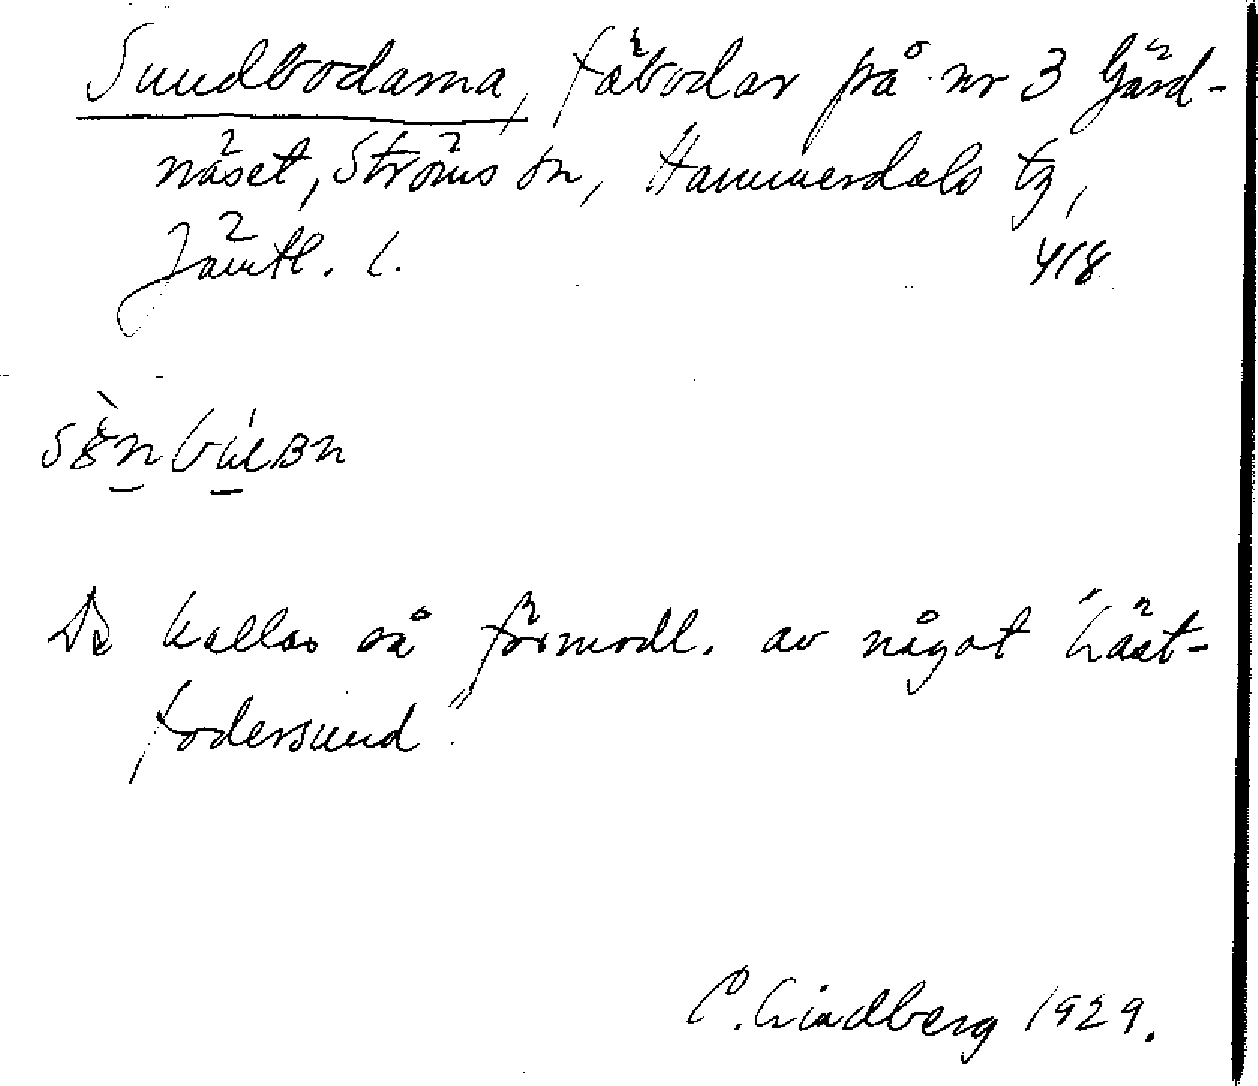 Sundbodarna, fäbodar på nr 3 Gärd-
näset, Ströms sn, Hammerdals tg,
Jämtl. l.
418
De kallas så förmodl. av något "Läst-
fodersund".
C. Lindberg 1929.